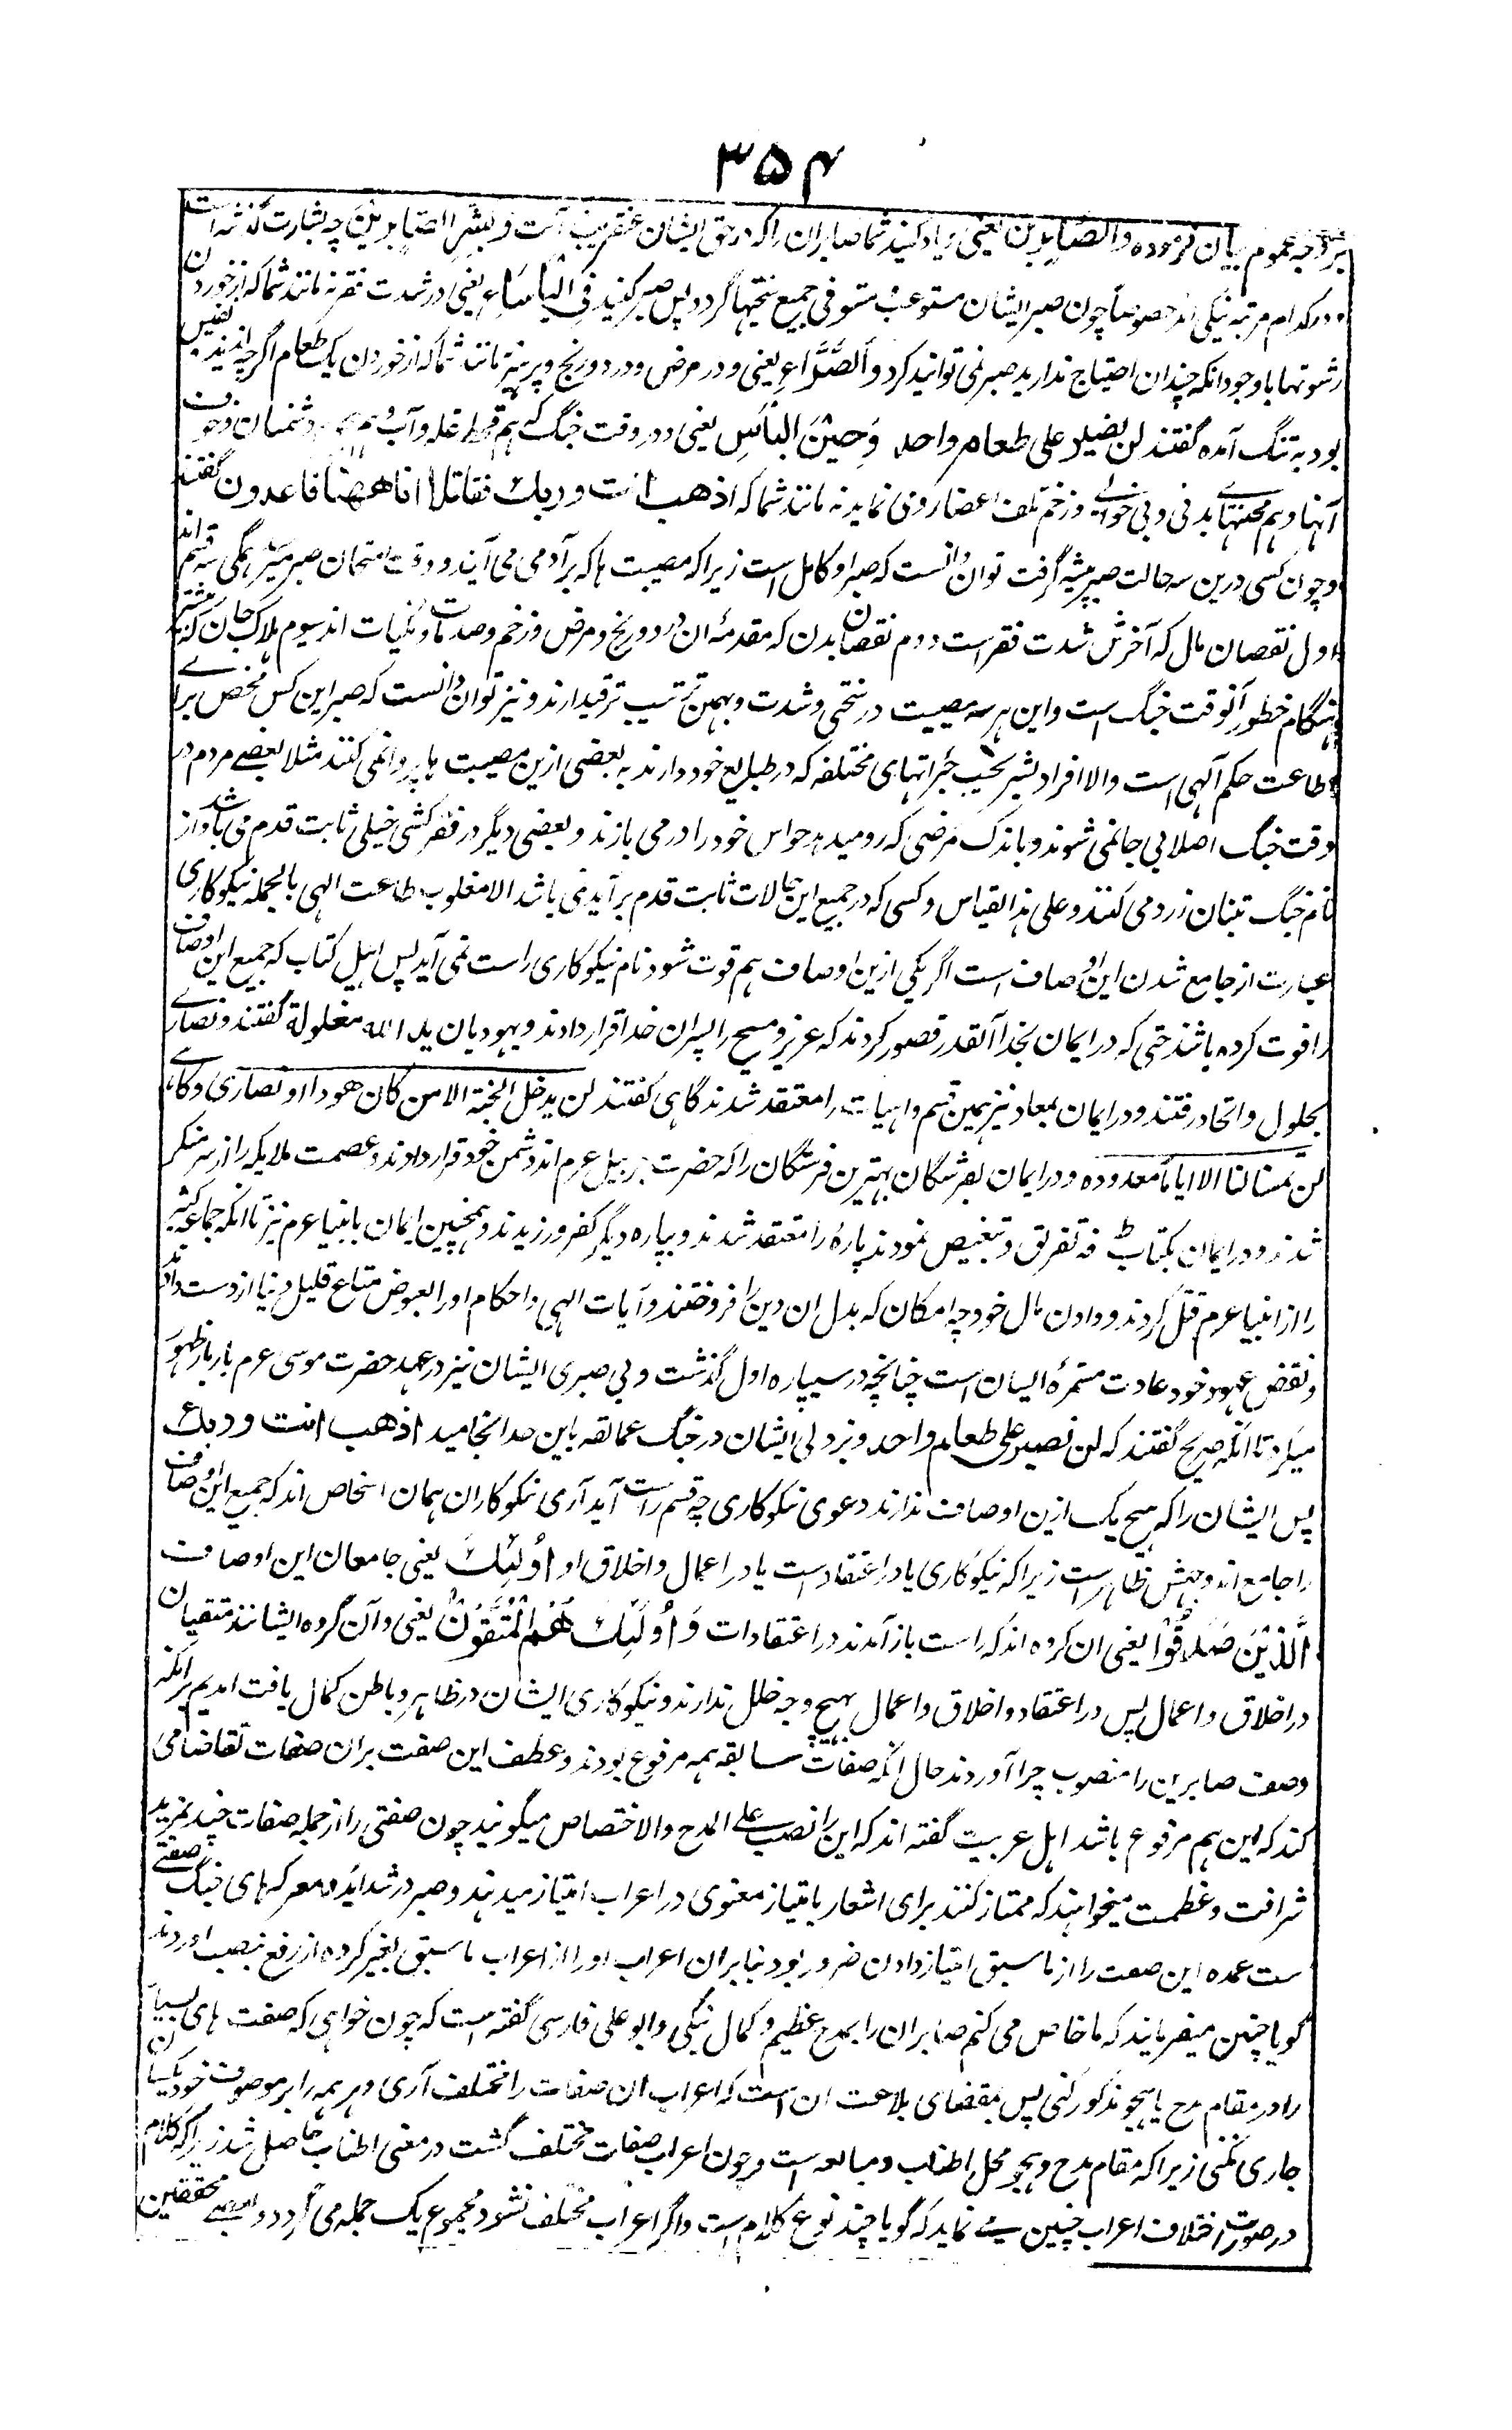 ۳۵۴
بر وجه عموم بیان فرموده والصّابرین یعنی و یاد کنید شما صابران را که در حق ایشان عنقریب آیت وبشّر الصّابرین چه بشارت گذشته است
و در کدام مرتبه نیکی اند خصوصاً چون صبر ایشان مستوعب و مستوفی جمیع سختیها گردد پس صبر کنید فِی الْبَأسَاءِ یعنی در شدت فقر نه مانند شما که از خوردن
رشوتها با وجود انکه چندان احتیاج ندارید صبر نمی توانید کرد وَالضَّرَّاءِ یعنی و در مرض و درد و رنج و پرهیز نه مانند شما که از خوردن یک طعام اگر چه لذیذ و نفیس
بود به تنگ آمده گفتند لن نصبر علی طعام واحد وَحِیْنَ الْبَأسِ یعنی و در وقت جنگ که هم قحط غله و آب و هم دشمنان و خوف
آنها و هم محنتهای بدنی و بی خوابی و زخم و تلف اعضا رو می نماید نه مانند شما که اذهب انت و ربك فقاتلا انا ههنا قاعدون گفتند
و چون کسی درین سه حالت صبر پیشه گرفت توان دانست که صبر او کامل است زیرا که مصیبت ها که بر آدمی می آیند و وقت امتحان صبر میرسد همگی سه قسم اند
اول نقصان مال که آخرش شدت فقر است دوم نقصان بدن که مقدمهٔ ان درد و رنج و مرض و زخم و صدمات و نکبات اند سیوم هلاک جان که بیشتر
هنگام خطور آن وقت جنگ است و این هر سه مصیبت در سختی و شدت و بهمین ترتیب ترقی دارند و نیز توان دانست که صبر این کس محض برای
اطاعت حکم آلهی است والا افراد بشر بحسب جرأتهای مختلفه که در طبایع خود دارند به بعضی ازین مصیبت ها پروا نمی کنند مثلا بعضے مردم در
وقت جنگ اصلا بی جا نمی شوند و باندک مرضی که رو میدهد حواس خود را در می بازند و بعضی دیگر در فقر کشی خیلی ثابت قدم می باشد و از
نام جنگ تنبان زرد می کنند و علی هذا القیاس و کسی که در جمیع این حالات ثابت قدم بر آید نمی باشد الا مغلوب طاعت الهی بالجمله نیکوکاری
عبارت از جامع شدن این اوصاف است اگر یکی ازین اوصاف هم فوت شود نام نیکوکاری راست نمی آید پس اهل کتاب که جمیع این اوصاف
را فوت کرده باشند حتی که در ایمان بخدا آنقدر قصور کردند که عزیر و مسیح را پسران خدا قرار دادند و یهودیان ید الله مغلولة گفتند و نصاریٰ
بحلول و اتحاد رفتند و در ایمان بمعاد نیز همین قسم واهیات را معتقد شدند گاهی گفتند لن یدخل الجنة الا من کان هودا او نصاری و گاهی
لن تمسنا النار الا ایاما معدوده و در ایمان بفرشتگان بهترین فرشتگان را که حضرت جبرئیل عرم اند دشمن خود قرار دادند و عصمت ملایکه را از سر منکر
شدند و در ایمان بکتاب تفریق و تبعیض نمودند پارهٔ را معتقد شدند و بپاره دیگر کفر ورزیدند و همچنین ایمان بانبیا عرم نیز تا انکه جماعه کثیر
را از انبیا عرم قتل کردند و دادن مال خود چه امکان که بدل ان دین را فروختند و آیات الهی و احکام او را بعوض متاع قلیل دنیا از دست دادند
و نقض عهود خود عادت مستمرهٔ ایشان است چنانچه در سیپاره اول گذشت و بی صبری ایشان نیز در عهد حضرت موسی عرم بار بار ظهور
میکرد تا انکه صریح گفتند که لن نصبر علی طعام واحد و بزدلی ایشان در جنگ عمالقه باین حد انجامید اذهب انت و ربك
پس ایشان را که هیچ یک ازین اوصاف ندارند دعوی نیکوکاری چه قسم راست آید آری نیکوکاران همان اشخاص اند که جمیع این اوصاف
را جامع اند و وجهش ظاهر است زیرا که نیکوکاری یا در اعتقاد است یا در اعمال و اخلاق و اُولٰئِكَ یعنی جامعان این اوصاف
الَّذِیْنَ صَدَقُوْا یعنی ان گروه اند که راست باز آمدند در اعتقادات وَاُولٰئِكَ هُمُ الْمُتَّقُوْنَ یعنی و آن گروه ایشانند متقیان
در اخلاق و اعمال پس در اعتقاد و اخلاق و اعمال بهیچ وجه خلل ندارند و نیکوکاری ایشان در ظاهر و باطن کمال یافت امدیم بر انکه
وصف صابرین را منصوب چرا آوردند حال انکه صفات سابقه همه مرفوع بودند و عطف این صفت بران صفات تقاضا می
کند که این هم مرفوع باشد اهل عربیت گفته اند که این را نصب علی المدح والاختصاص میگویند چون صفتی را از جمله صفات چند بمزید
شرافت و عظمت میخواهند که ممتاز کنند برای اشعار بامتیاز معنوی در اعراب امتیاز میدهند و صبر در شداید و معرکه های جنگ صفتی
ست عمده این صفت را از ما سبق امتیاز دادن ضرور بود بنابران اعراب او را از اعراب ما سبق تغیر کرده از رفع بنصب اوردند
گویا چنین میفرمایند که ما خاص می کنم صابران را بمدح عظیم و کمال نیکی و ابو علی فارسی گفته است که چون خواهی که صفت های بسیار
را در مقام مدح یا هجو مذکور کنی پس مقتضای بلاغت ان است که اعراب ان صفات را مختلف آری و هر همه را بر موصوف خود یکسان
جاری نکنی زیرا که مقام مدح و هجو محل اطناب و مبالغه است و چون اعراب صفات مختلف گشت در معنی اطناب حاصل شد زیرا که کلام
در صورت اختلاف اعراب چنین مے نماید که گویا چند نوع کلام است و اگر اعراب مختلف نشود مجموع یک جمله می گردد و بعضے محققین